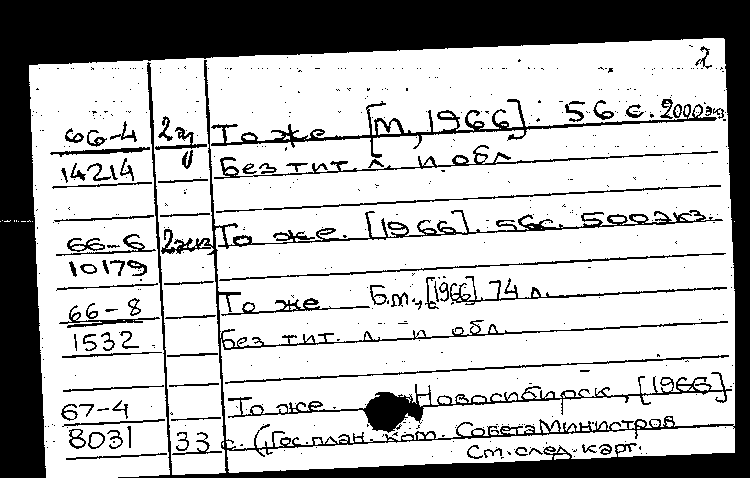 2
66-4 2 эк То же. [М., 1966]. 56 с. 2000 экз.
14214 Без тит. л. и обл.
66-6 2 экз То же. [1966]. 56 с. 500 экз.
10179
66-8 То же Б.м., [1966]. 74 л.
1532 Без тит. л. и обл.
67-4 То же. Новосибирск, [1966]
8031 33 с. (Гос. план. ком. Совета Министров
См. след. карт.